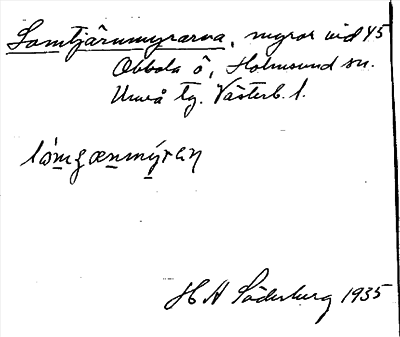 Lomtjärnmyrarna, myror vid 45
Obbola ö, Holmsund sn.
Umeå tg. Västerb. l.
lómʒænmýraɳ
H A Söderburg 1935